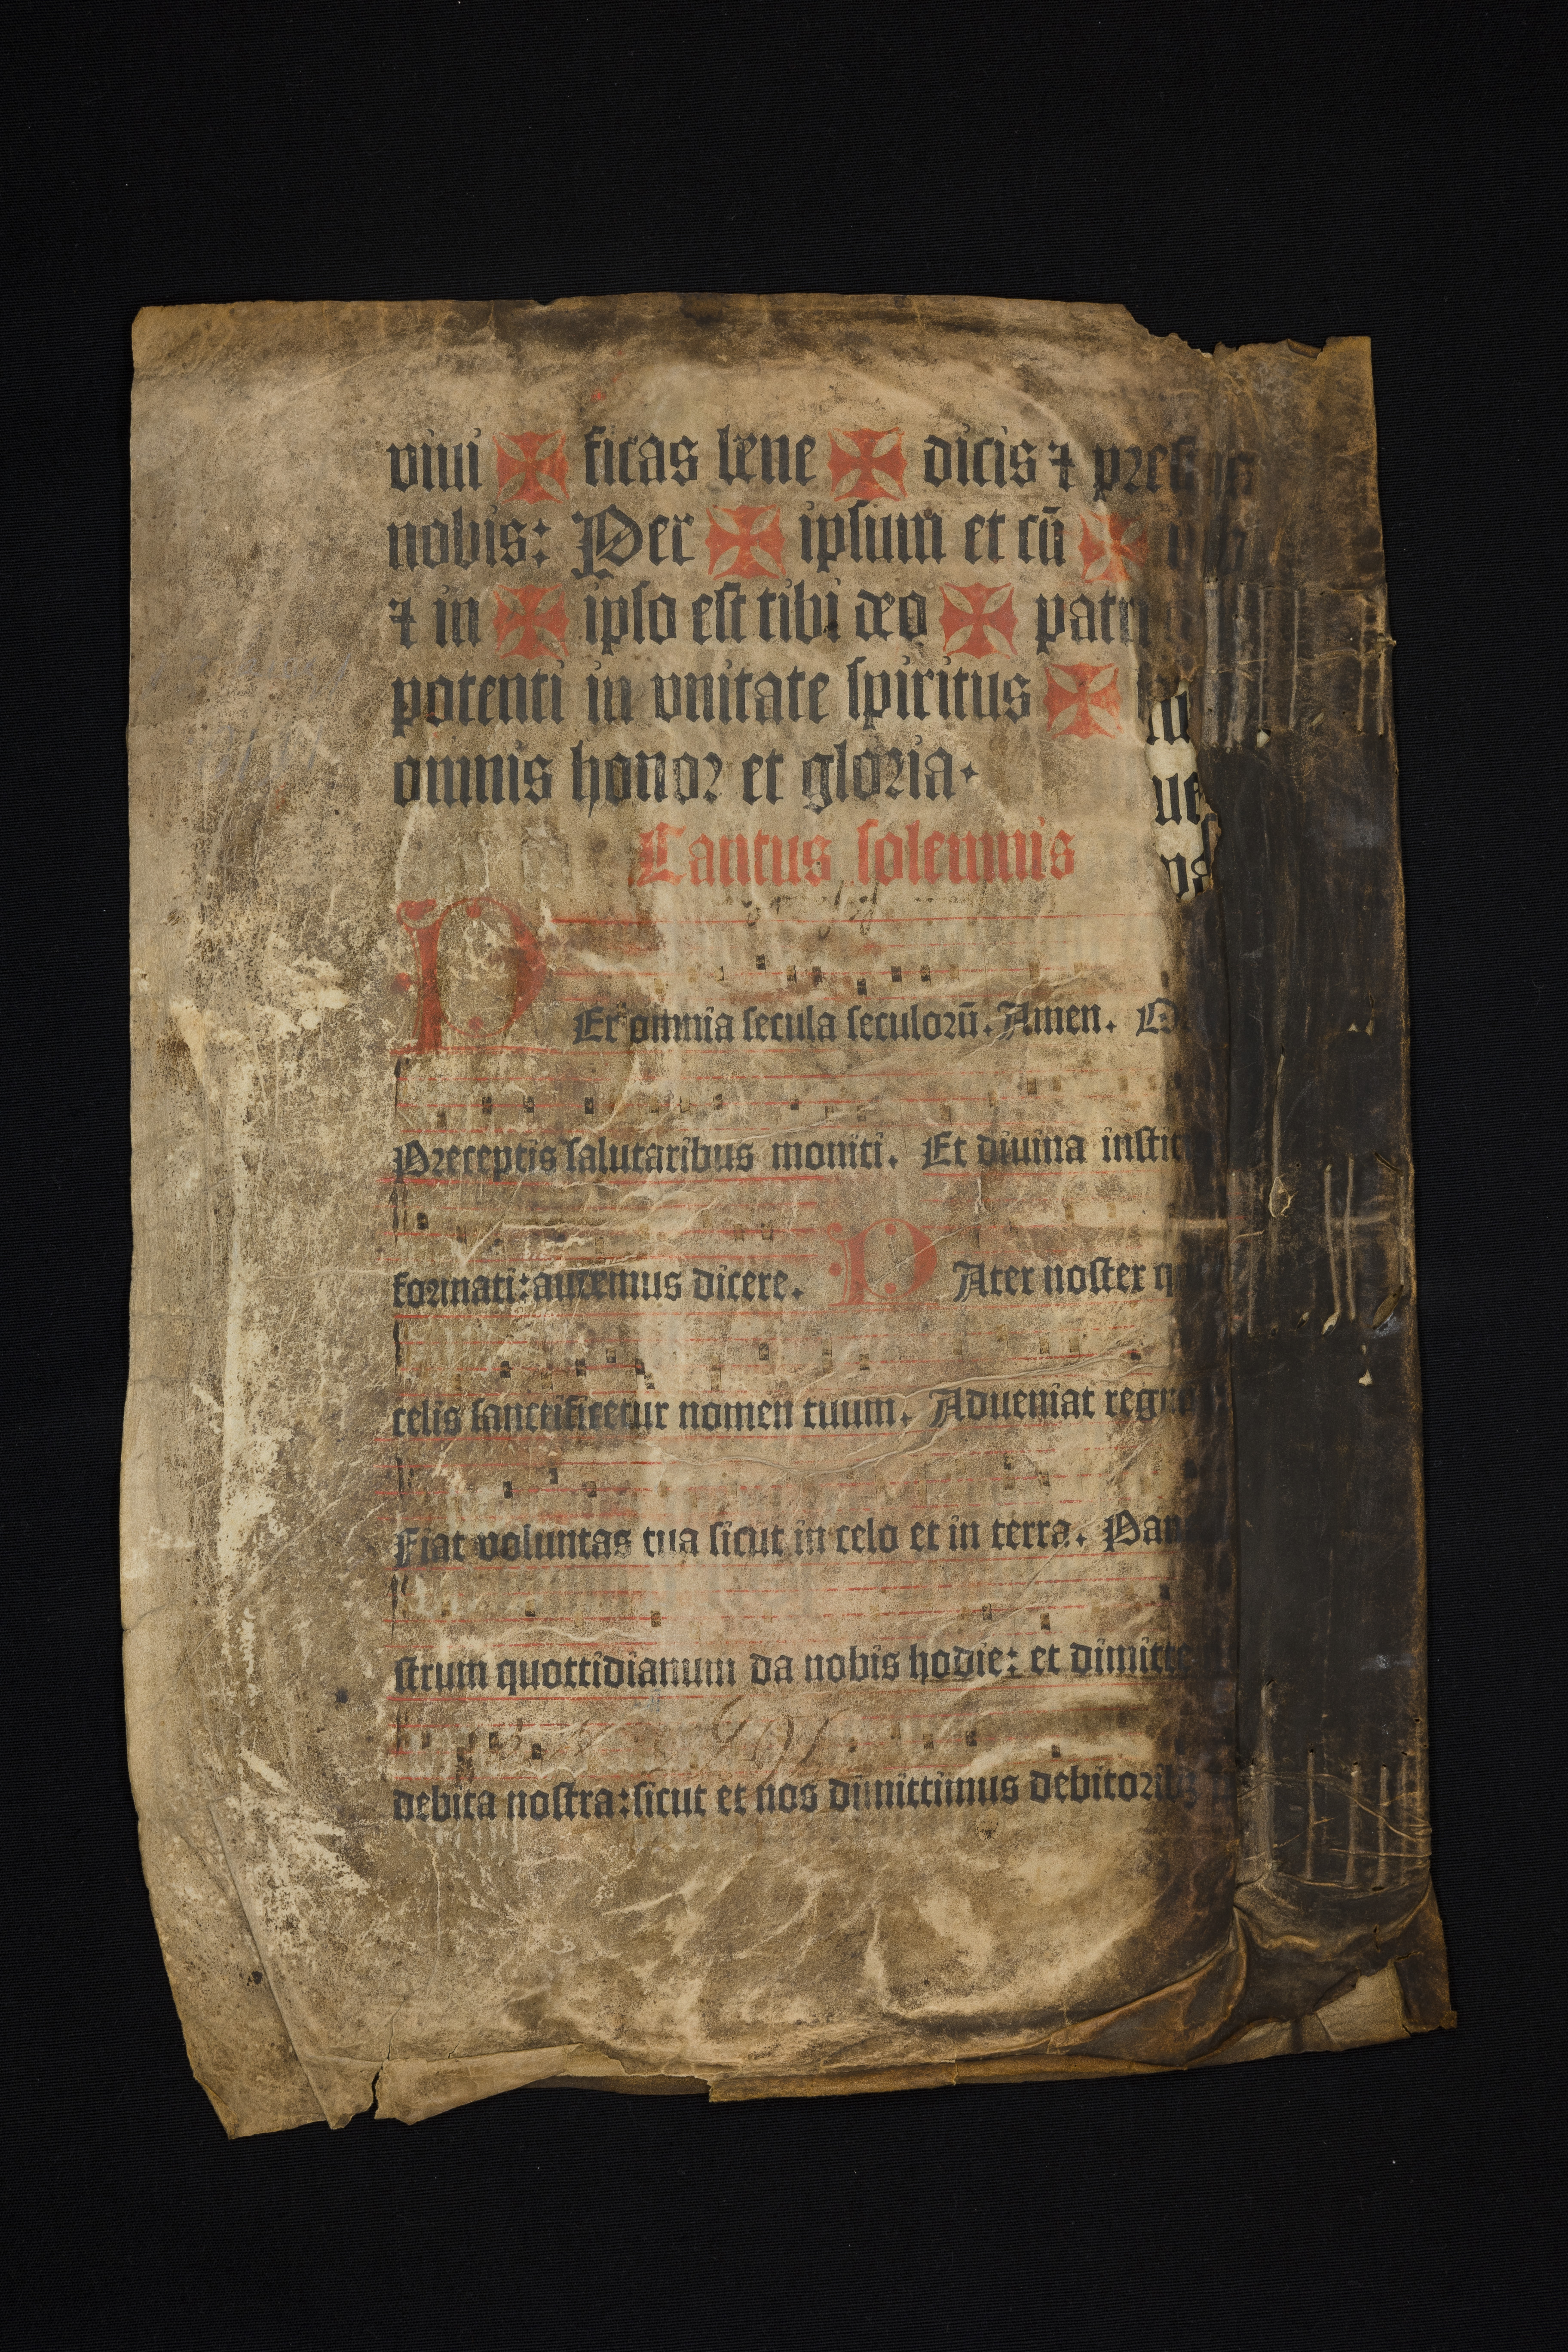 viui ✠ ficas bene ✠ dicis ⁊ pres
nobis: Per ✠ ipsum et cū ✠
⁊ in ✠ ipso est tibi deo ✠ patri
potenti in vnitate spiritus ✠
omnis honor et gloria.
Cantus solennis
PEr omnia secula seculorū. Amen.
Preceptis salutaribus moniti. Et diuina instit
formati: audemus dicere. PAter noster q
celis sanctificetur nomen tuum. Adueniat regnū
Fiat voluntas tua sicut in celo et in terra. Pan
strum quottidianum da nobis hodie: et dimitte
debita nostra: sicut et nos dimittimus debitorib